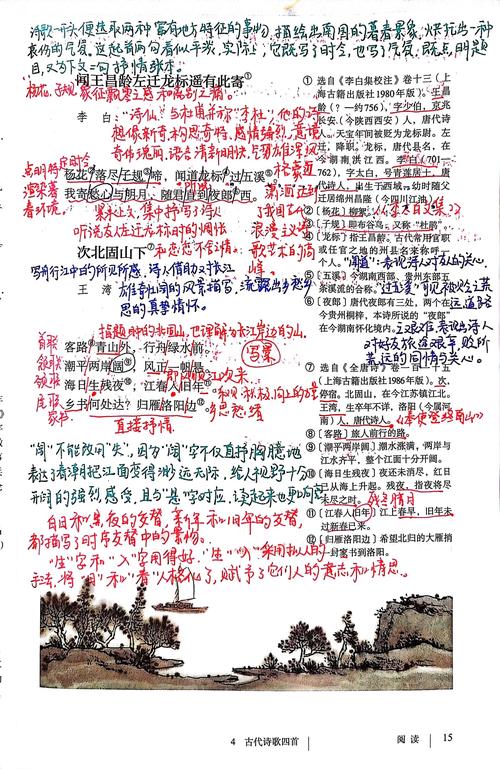 诗歌一开头便选取两种富有地方特征的事物,描绘出南国的暮春景象,烘托出一种
哀伤的气氛。这起首两句看似平淡,实际上,它既写了时令,也写了气氛,既点明题
目,又为下文二句抒情张本。
闻王昌龄左迁龙标遥有此寄①
杨花、子规 象征飘零之感和离别之情
李 白
“诗仙”与杜甫并称“李杜”,他的诗
想像新奇,构思奇特,感情强烈,意境
奇伟瑰丽,语言清新明快,
点明时令
渲染暮
春环境
杨花②落尽子规③啼,闻道龙标④过五溪⑤。
我寄愁心与明月,随君直到夜郎⑥西。
集中抒写了诗人
听说友人左迁龙标时的
次北固山下⑦ 和恋恋不舍之情。
写舟行江中的所见所感,诗人借助对长江
王 湾
雄奇山间的风景描写,流露出乡愁乡思的真挚情怀。
指题那的北固山,也理解为长江岸边的山。
首联 客路⑧青山外,行舟绿水前。 写景
颔联 潮平两岸阔⑨,风正一帆悬。
颈联 海日生残夜⑩,江春入旧年⑪。
尾联 乡书何处达?归雁洛阳边⑫。
家书
直接抒情
乡思愁绪
“阔”不能改成“失”,因为“阔”字不仅直抒胸臆地
表达了春潮把江面变得渺远无际,给人视野十分
开阔的强烈感受,且与“悬”字对应,读起来也更
白日和黑夜的交替,新年和旧年的交替,
都描写了时序交替中的景物。
“生”字和“入”字用得好,“生”“入”采用拟人的
手法,将“日”和“春”人格化了,赋予了它们人的意志和情思。
① 选自《李白集校注》卷十三(上
海古籍出版社1980年版)。王昌
龄(?—约756),字少伯,京兆
长安(今陕西西安)人,唐代诗
人,天宝年间被贬为龙标尉。左
迁,降职。龙标,唐代县名,在
今湖南洪江西。李白(701—
762),字太白,号青莲居士,唐
代诗人,出生于西域,幼时随父
迁居绵州昌隆(今四川江油)。
②〔杨花〕柳絮。《李太白文集》
③〔子规〕即布谷鸟,又称“杜鹃”。
④〔龙标〕指王昌龄。古代常用官职
或任官之地的州县名来称呼一
个人。
“闻道”:表现诗人对友人的关心。
⑤〔五溪〕今湖南西部、贵州东部五
条溪流的合称。
⑥〔夜郎〕唐代夜郎有三处,两个在
今贵州桐梓,本诗所说的“夜郎”
在今湖南怀化境内。
之艰难,表现出诗人
对好友旅途艰辛,贬所
荒远的同情与关心。
⑦ 选自《全唐诗》卷一百一十五
(上海古籍出版社1986年版)。次,
停宿。北固山,在今江苏镇江北。
王湾,生卒年不详,洛阳(今属河
南)人,唐代诗人。
⑧〔客路〕旅人前行的路。
⑨〔潮平两岸阔〕潮水涨满,两岸与
江水齐平,整个江面十分开阔。
⑩〔海日生残夜〕夜还未消尽,红日
已从海上升起。残夜,指夜将尽
未尽之时。
⑪〔江春入旧年〕江上春早,旧年未
过新春已来。
⑫〔归雁洛阳边〕希望北归的大雁捎
一封家书到洛阳。
4 古代诗歌四首
阅读 15